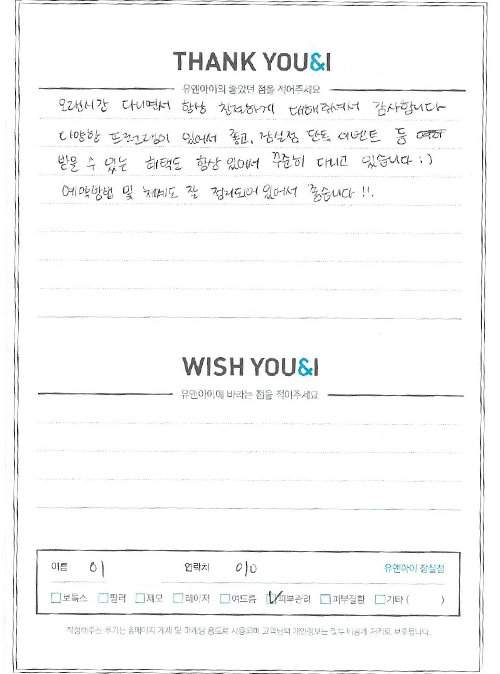 THANK YOU&I
유앤아이의 좋았던 점을 적어주세요
오랜시간 다니면서 항상 친절하게 대해주셔서 감사합니다
다양한 프로그램이 있어서 좋고, 잠실점 단독 이벤트 등
받을 수 있는 혜택도 항상 있어서 꾸준히 다니고 있습니다 :)
예약방법 및 체계도 잘 정리되어 있어서 좋습니다 !!.
WISH YOU&I
유앤아이에 바라는 점을 적어주세요
이름 이 연락처 010 유앤아이 잠실점
보톡스 필러 제모 레이저 여드름 피부관리 피부질환 기타 ( )
작성해주신 후기는 홈페이지 게재 및 마케팅 용도로 사용되며 고객님의 개인정보는 일부 비공개 처리로 보호됩니다.